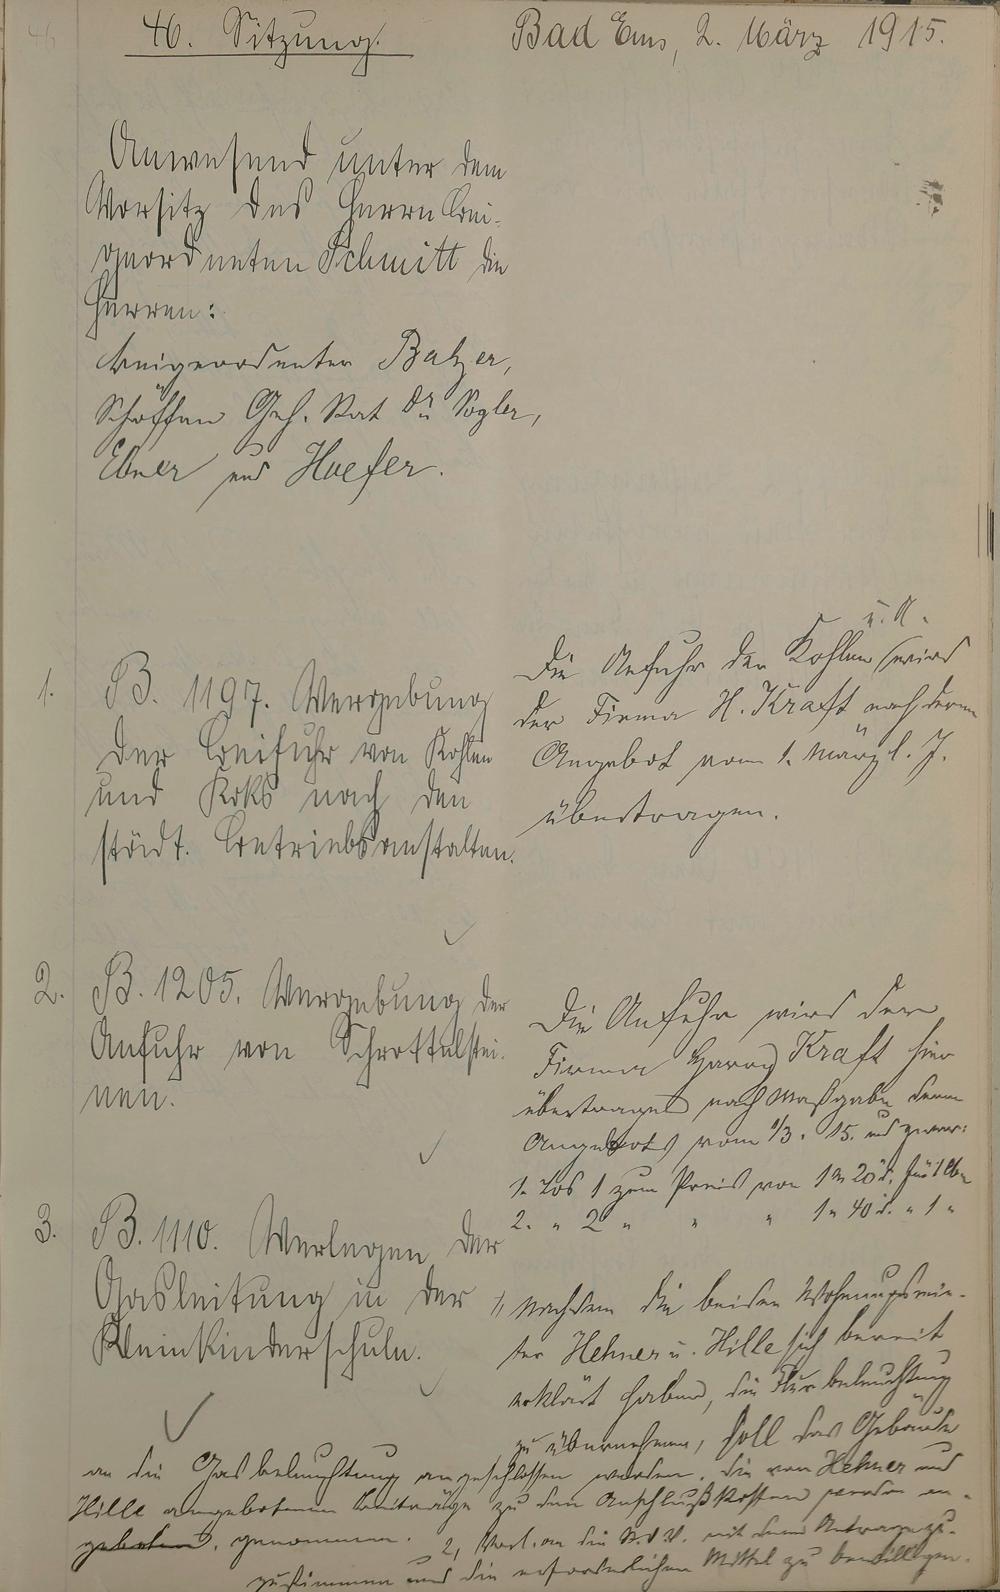 46. Sitzung.
Bad Ems, 2. März 1915.
Anwesend unter dem
Vorsitz des Herrn Bei-
geordneten Schmitt die
Herren:
Beigeordneter Balzer,
Schöffen Geh. Rat Dr. Vogler,
Ebner und Hoefer.
1. B. 1197. Vergebung
der Beifuhr von Kohlen
und Koks nach den
städt. Betriebsanstalten.
Die Anfuhr der Kohlen u. K. wird
der Firma H. Kraft nach deren
Angebot vom 1. März l. J.
übertragen.
2. B. 1205. Vergebung der
Anfuhr von Schrottelstei-
nen.
Die Anfuhr wird der
Firma Kraft hier
übertragen nach Maßgabe deren
Angebots vom 1/3. 15. und zwar:
1. Los 1 zum Preis von 1 M 20 d. für 1 cbm
2. " 2 " " " 1 " 40 d. " 1 "
3. B. 1110. Verlegen der
Gasleitung in der
Kleinkinderschule.
1, Nachdem die beiden Wohnungsmie-
ter Hehner u. Hille sich bereit
erklärt haben, die Flurbeleuchtung
zu übernehmen, soll das Gebäude
an die Gasbeleuchtung angeschlossen werden. Die von Hehner und
Hille angebotenen Beiträge zu den Anschlußkosten werden an-
geboten. genommen. 2, Vorl. an die St. V. V. mit dem Antrage zu-
zustimmen und die erforderlichen Mittel zu bewilligen.